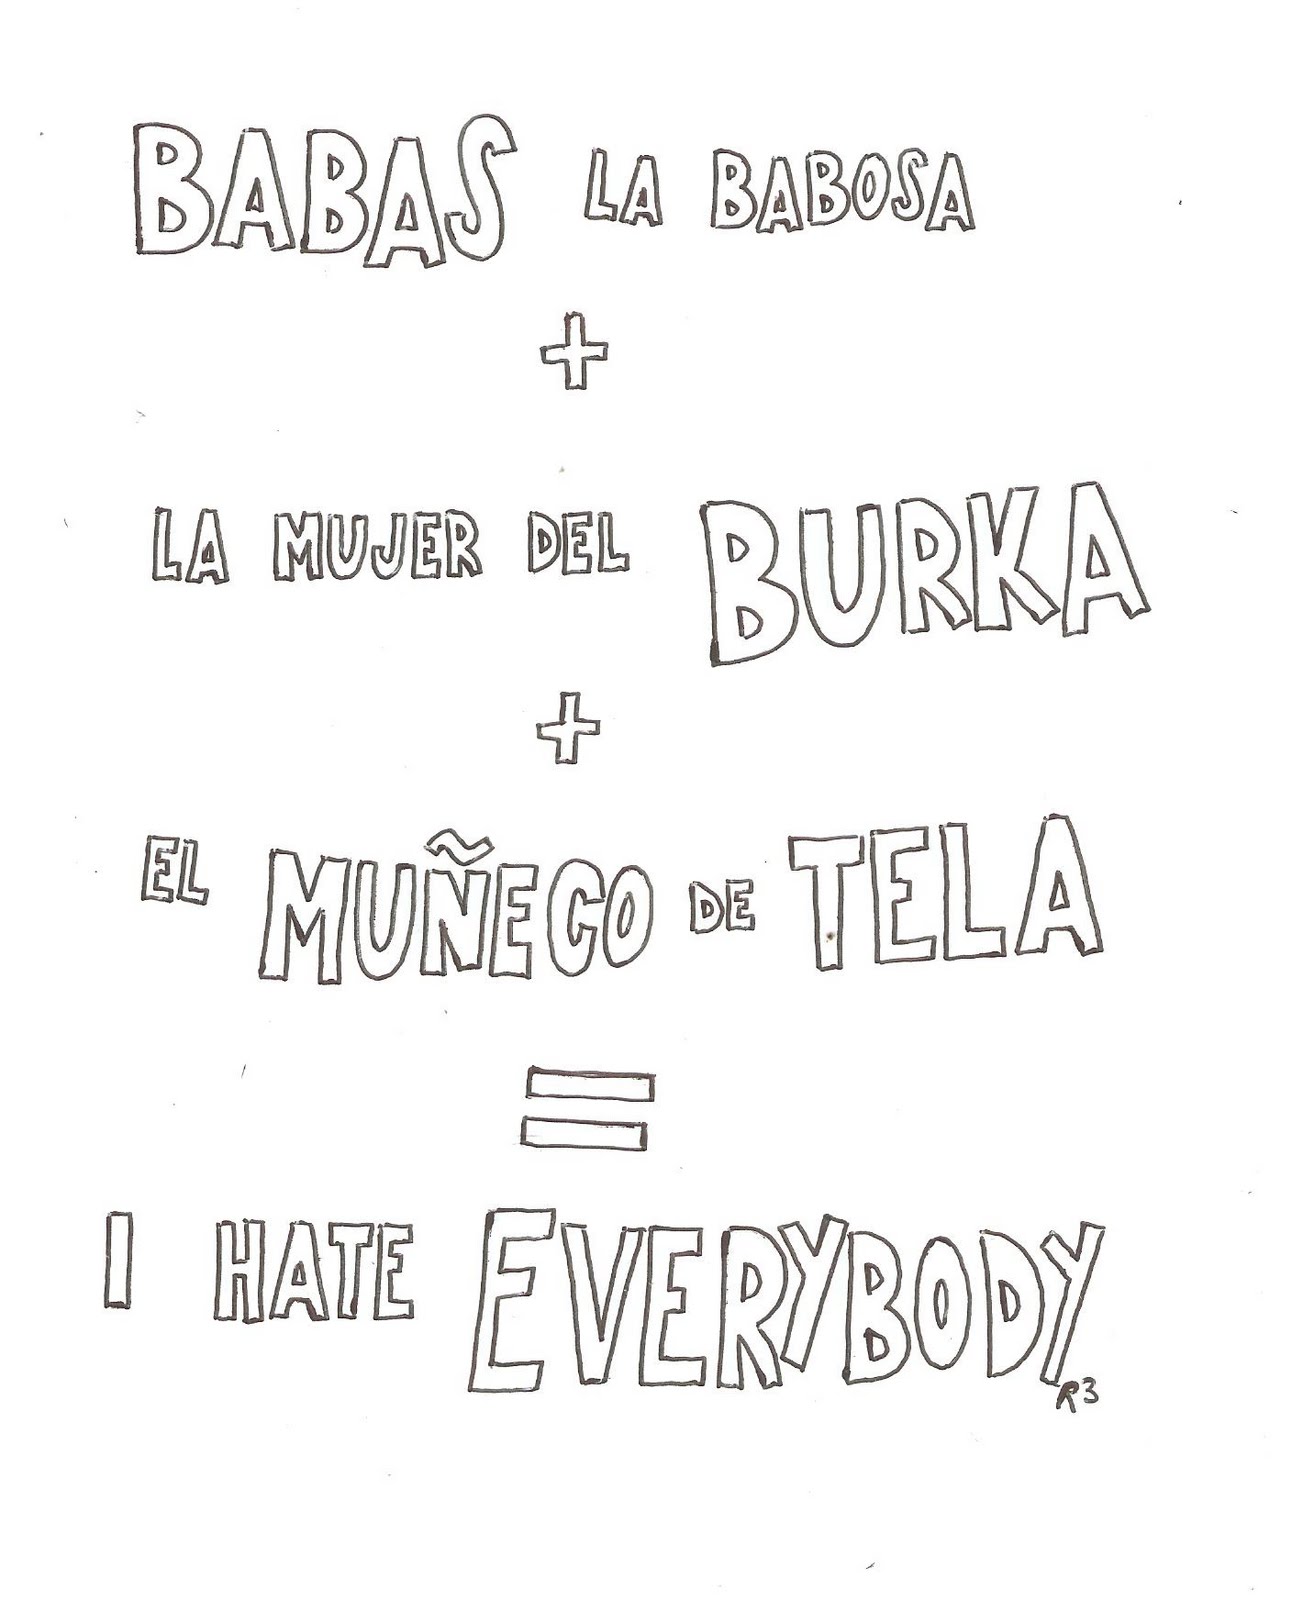 BABAS LA BABOSA
+
LA MUJER DEL BURKA
+
EL MUÑECO DE TELA
=
I HATE EVERYBODY
R3